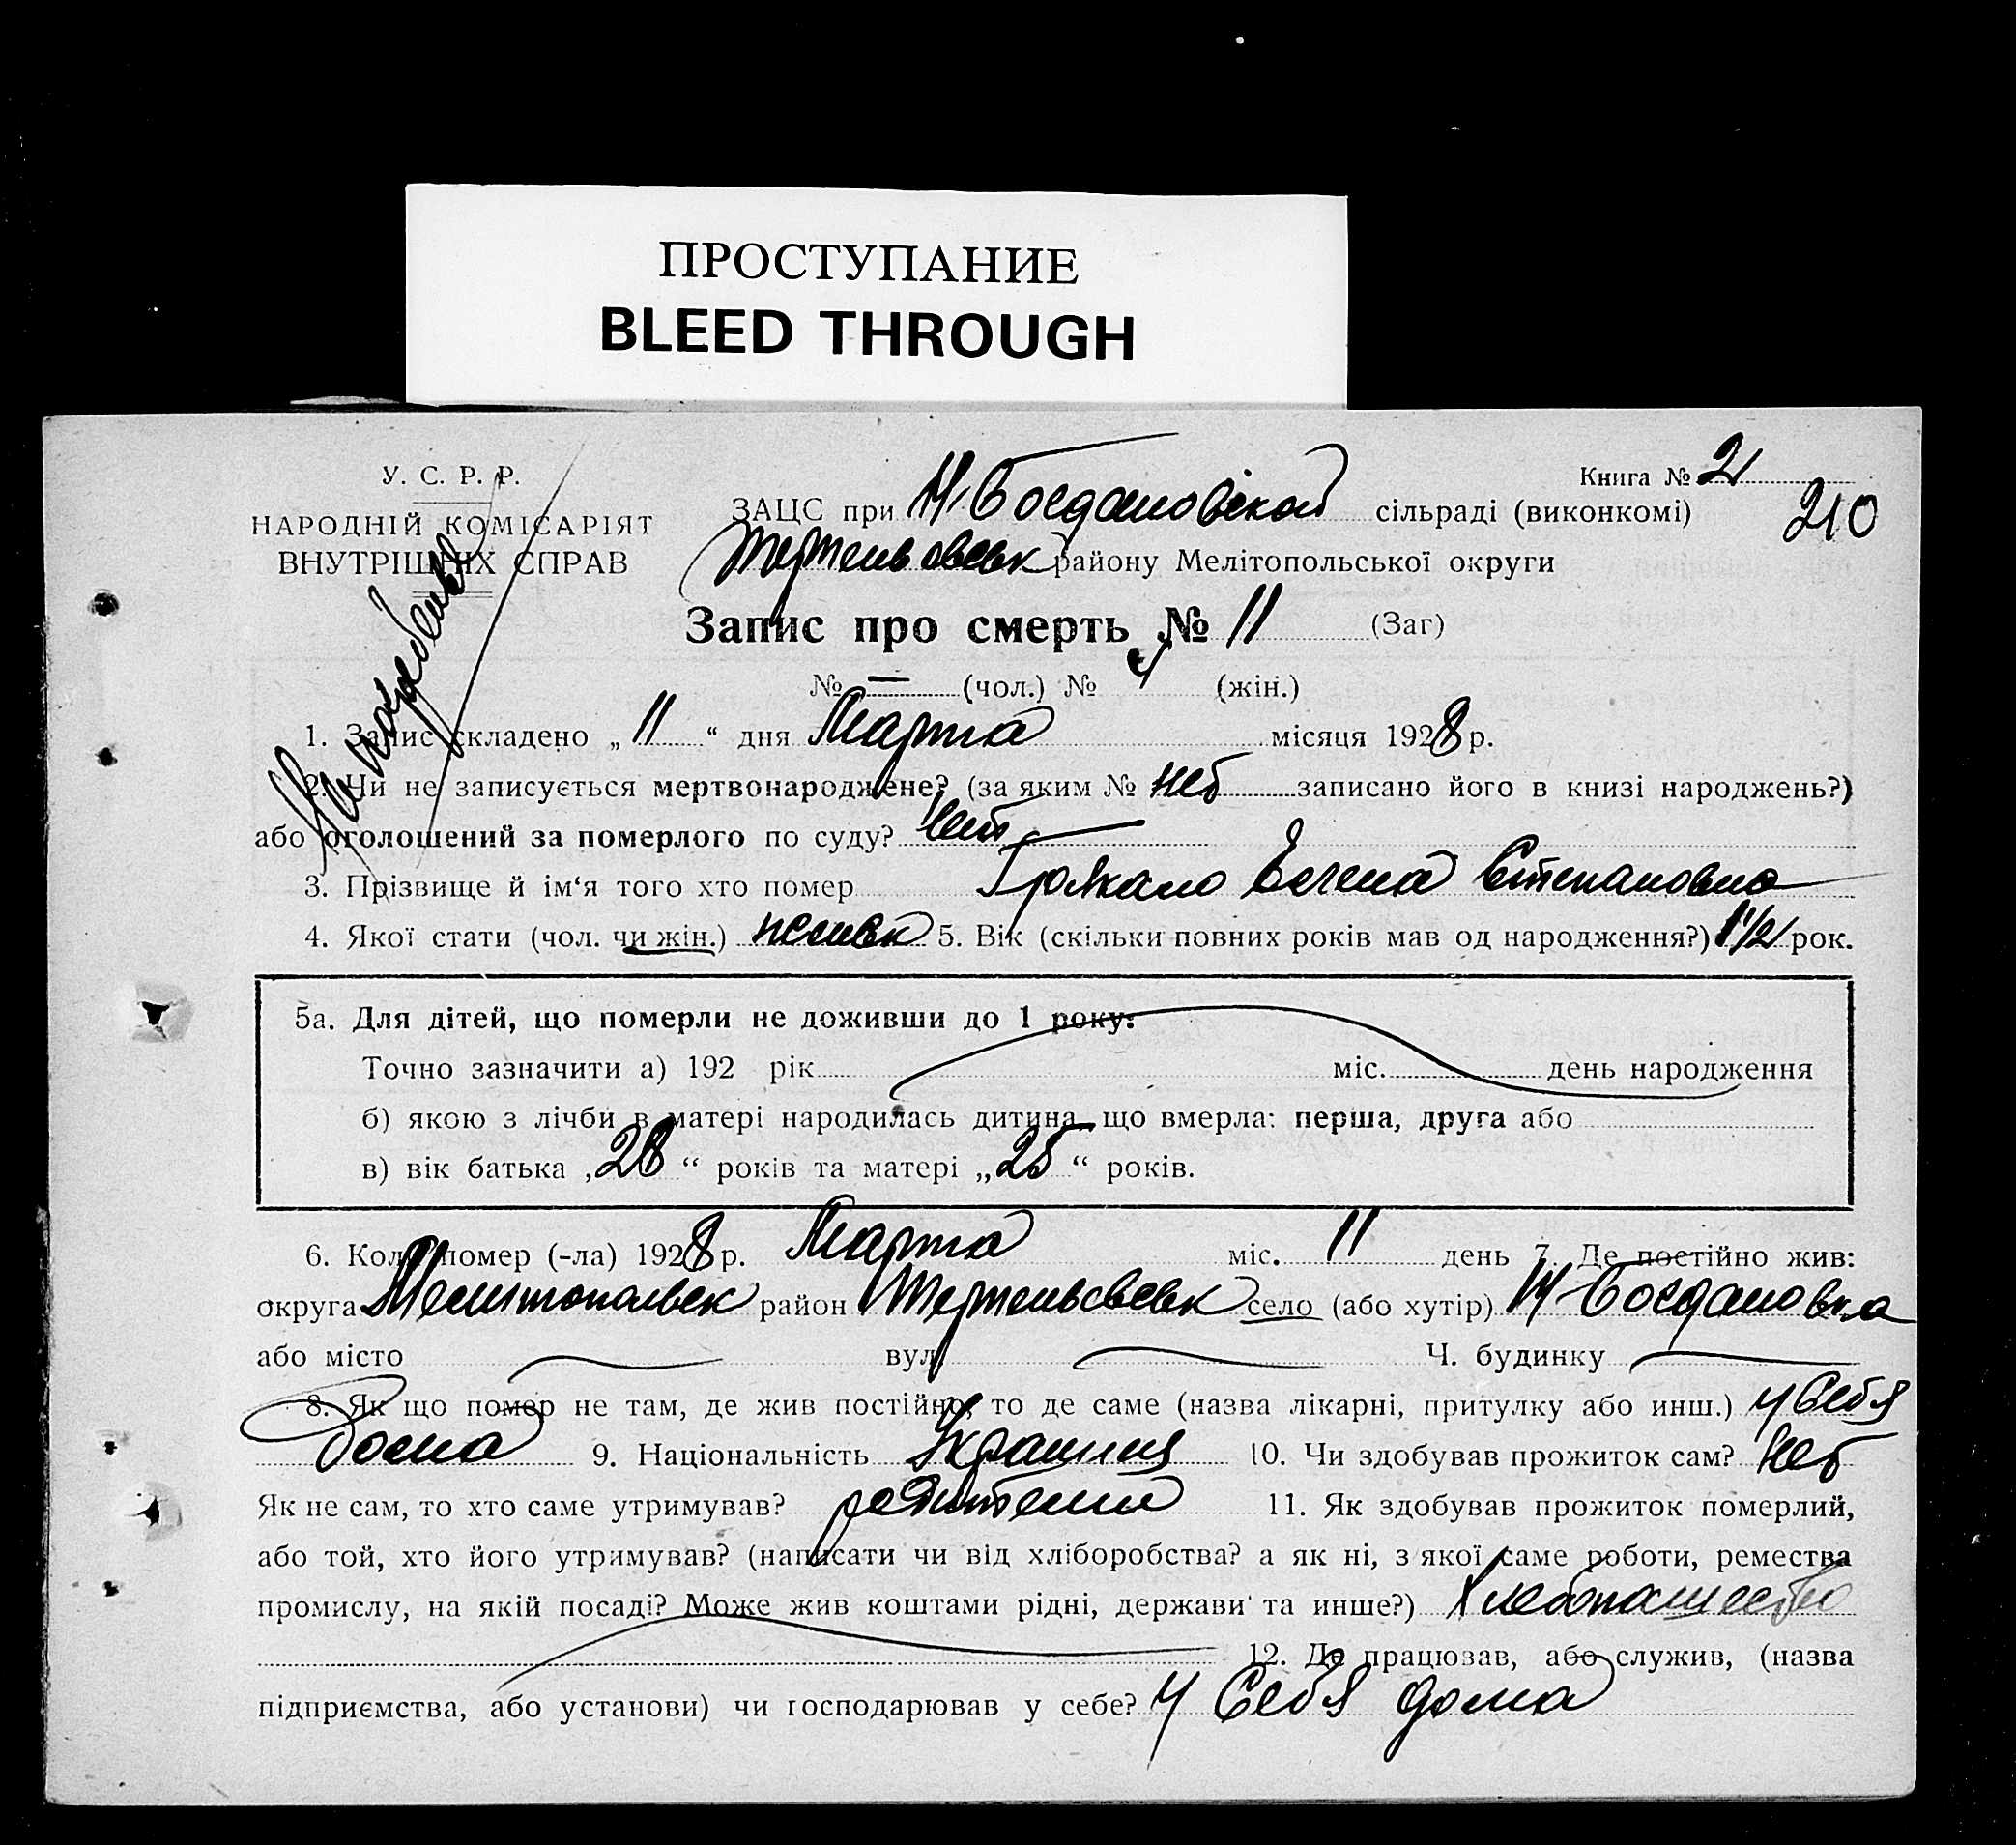 ПРОСТУПАНИЕ
BLEED THROUGH
У. С. Р. Р.
НАРОДНІЙ КОМІСАРІЯТ
ВНУТРІШНІХ СПРАВ
Книга № 21
210
ЗАЦС при Н-Богдановской сільраді (виконкомі)
району Мелітопольської округи
Запис про смерть № 11 (Заг)
№ — (чол.) № 4 (жін.)
1. Запис складено „ 11 “ дня Марта місяця 1928 р.
2. Чи не записується мертвонароджене? (за яким № нет записано його в книзі народжень?)
або оголошений за померлого по суду? нет
3. Прізвище й ім‘я того хто помер Елена Степановна
4. Якої стати (чол. чи жін.) женск 5. Вік (скільки повних років мав од народження?) 1 1/2 рок.
5а. Для дітей, що померли не доживши до 1 року:
Точно зазначити а) 192 рік міс. день народження
б) якою з лічби в матері народилась дитина що вмерла: перша, друга або
в) вік батька „28“ років та матері „25“ років.
6. Коли помер (-ла) 1928 р. Марта міс. 11 день 7. Де постійно жив:
округа Мелитопольск район село (або хутір) Н-Богдановка
або місто вул. Ч. будинку
8. Як що помер не там, де жив постійно, то де саме (назва лікарні, притулку або инш.) у себя
дома 9. Національність 10. Чи здобував прожиток сам? нет
Як не сам, то хто саме утримував? родители 11. Як здобував прожиток померлий,
або той, хто його утримував? (написати чи від хліборобства? а як ні, з якої саме роботи, ремества
промислу, на якій посаді? Може жив коштами рідні, держави та инше?) Хлебопашество
12. Де працював, або служив, (назва
підприємства, або установи) чи господарював у себе? у себя дома